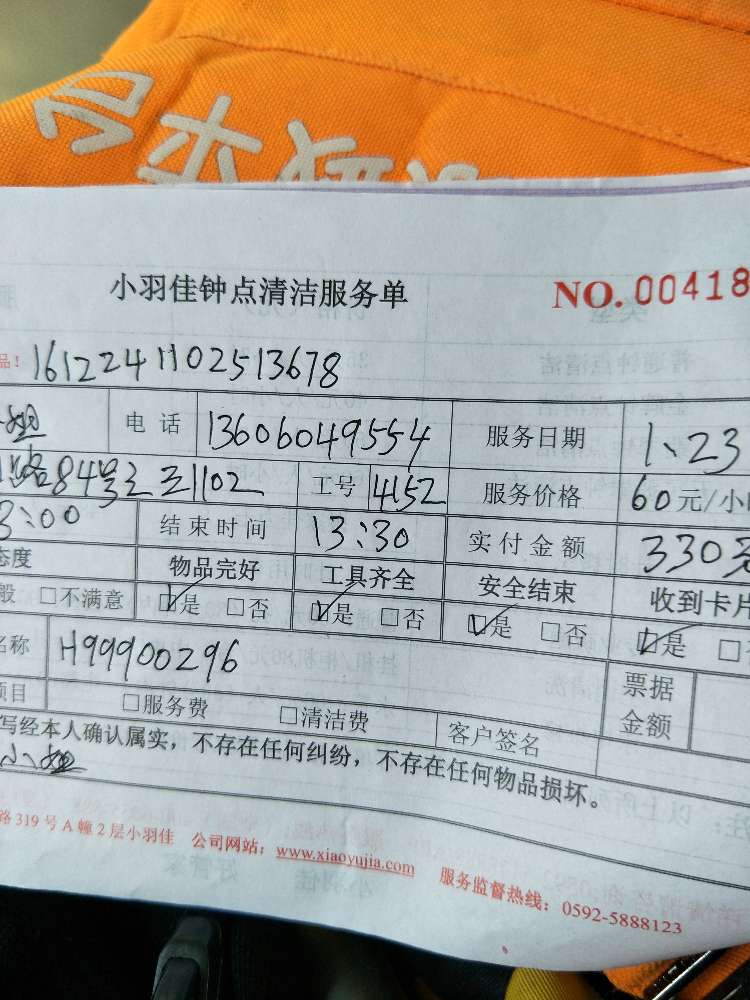 小羽佳钟点清洁服务单 NO. 00418
品! 1612241102513678
姐 电话 13606049554 服务日期 1.23
路84号之三1102 工号 4152 服务价格 60元/小
3:00 结束时间 13:30 实付金额 330元
态度 物品完好 工具齐全 安全结束 收到卡片
般 □不满意 ☑是 □否 ☑是 □否 ☑是 □否 ☑是 □
名称 H99900296 票据金额
项目 □服务费 □清洁费 客户签名
写经本人确认属实，不存在任何纠纷，不存在任何物品损坏。
小姐
路 319 号 A 幢 2 层小羽佳 公司网站：www.xiaoyujia.com 服务监督热线：0592-5888123